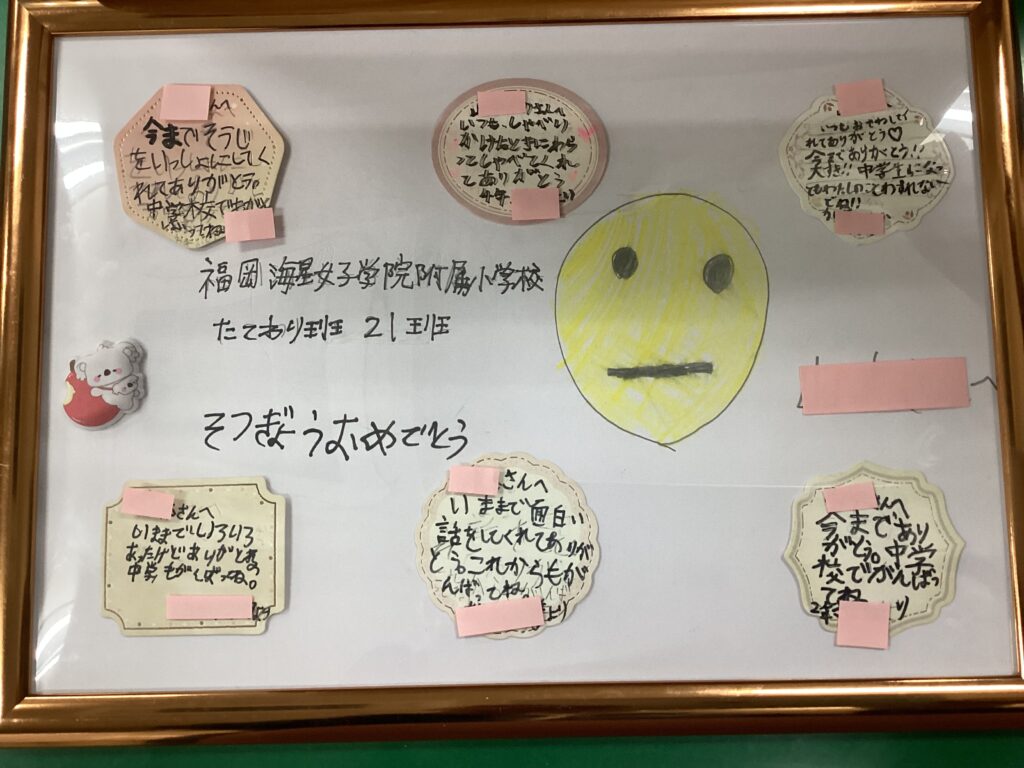 さんへ
今までそうじ
をいっしょにしてく
れてありがとう。
中学校でもがん
ばってね
さんへ
いつも、しゃべり
かけたときにわら
ってしゃべてくれ
てありがとう
より
いつもおせわしてく
れてありがとう♡
今までありがとう!!
大すき!!中学生になっ
てもわたしのことわすれない
でね!!
福岡海星女子学院附属小学校
たてわり班 21班
そつぎょうおめでとう
さんへ
いままでいろいろ
あったけどありがとね。
中学もがんばってね。
さんへ
いままで面白い
話をしてくれてありが
とう。これからもが
んばってね。
より
さんへ
今まであり
がとう。中学
校でがんばっ
てね
り